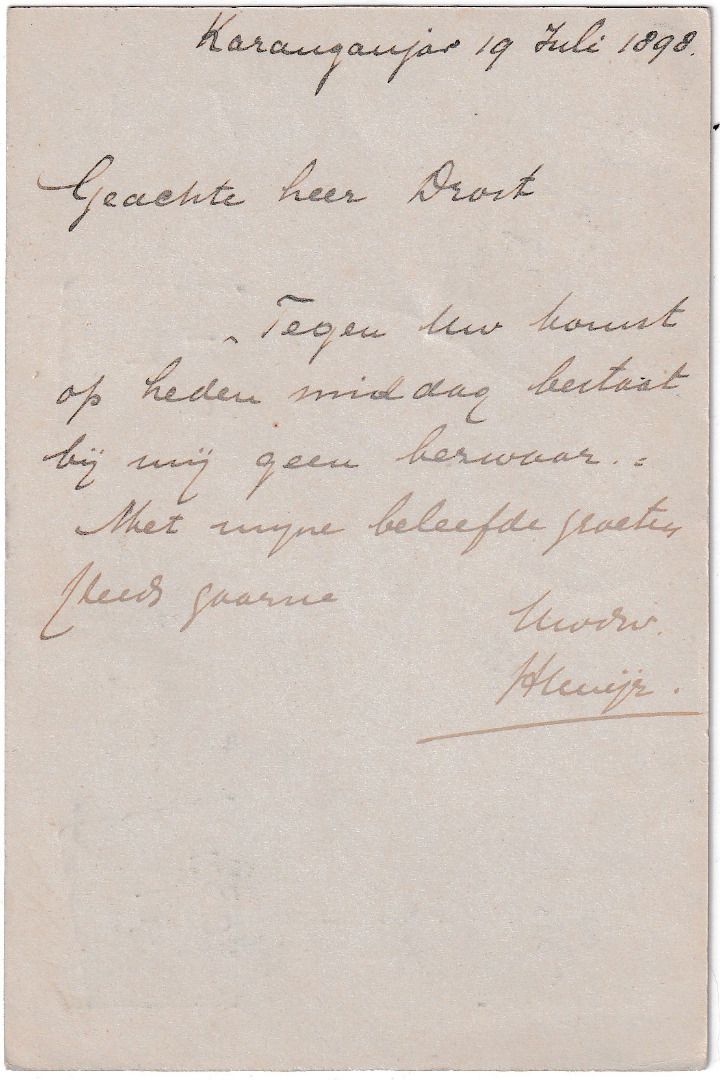 Karanganjar 19 Juli 1898.
Geachte heer Drost
Tegen Uw komst
op heden middag bestaat
bij mij geen berwaar.
Met mijne beleefde groeten
steeds gaarne
Uwdw.